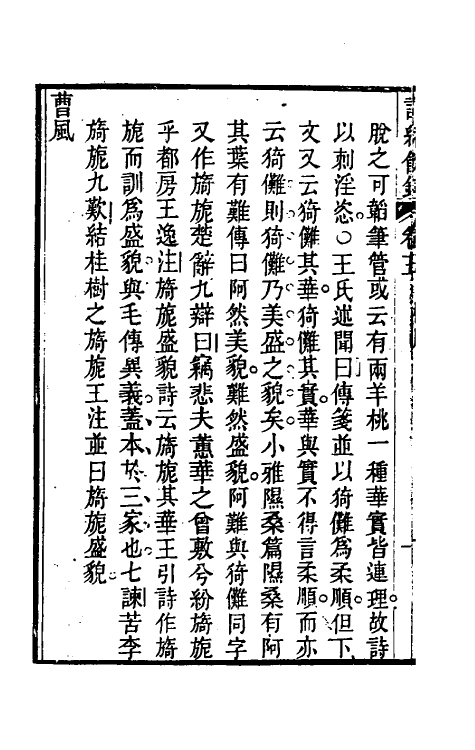 脫之可韜筆管或云有兩羊桃一種華實皆連理故詩
以刺淫恣○王氏述聞曰傳箋並以猗儺爲柔順但下
文又云猗儺其華猗儺其實華與實不得言柔順而亦
云猗儺則猗儺乃美盛之貌矣小雅隰桑篇隰桑有阿
其葉有難傳曰阿然美貌難然盛貌阿難與猗儺同字
又作旖旎楚辭九辯曰竊悲夫蕙華之曾敷兮紛旖旎
乎都房王逸注旖旎盛貌詩云旖旎其華王引詩作旖
旎而訓爲盛貌與毛傳異義蓋本於三家也七諫苦李
旖旎九歎結桂樹之旖旎王注並曰旖旎盛貌
曹風